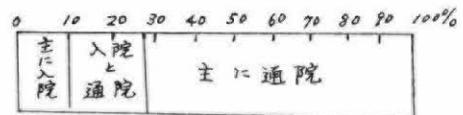 0 10 20 30 40 50 60 70 80 90 100%
主に入院
入院と通院
主に通院